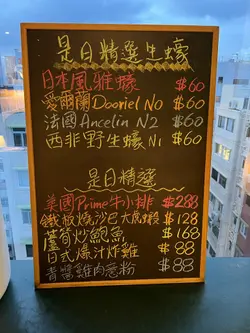 是日精選生蠔
日本風雅蠔 $60
愛爾蘭Dooriel No $60
法國Ancelin N2 $60
西非野生蠔 N1 $60
是日精選
美國Prime牛小排 $288
鐵板燒沙巴大虎蝦 $128
蘆筍炒鮑魚 $168
日式爆汁炸雞 $88
青醬雞肉意粉 $88